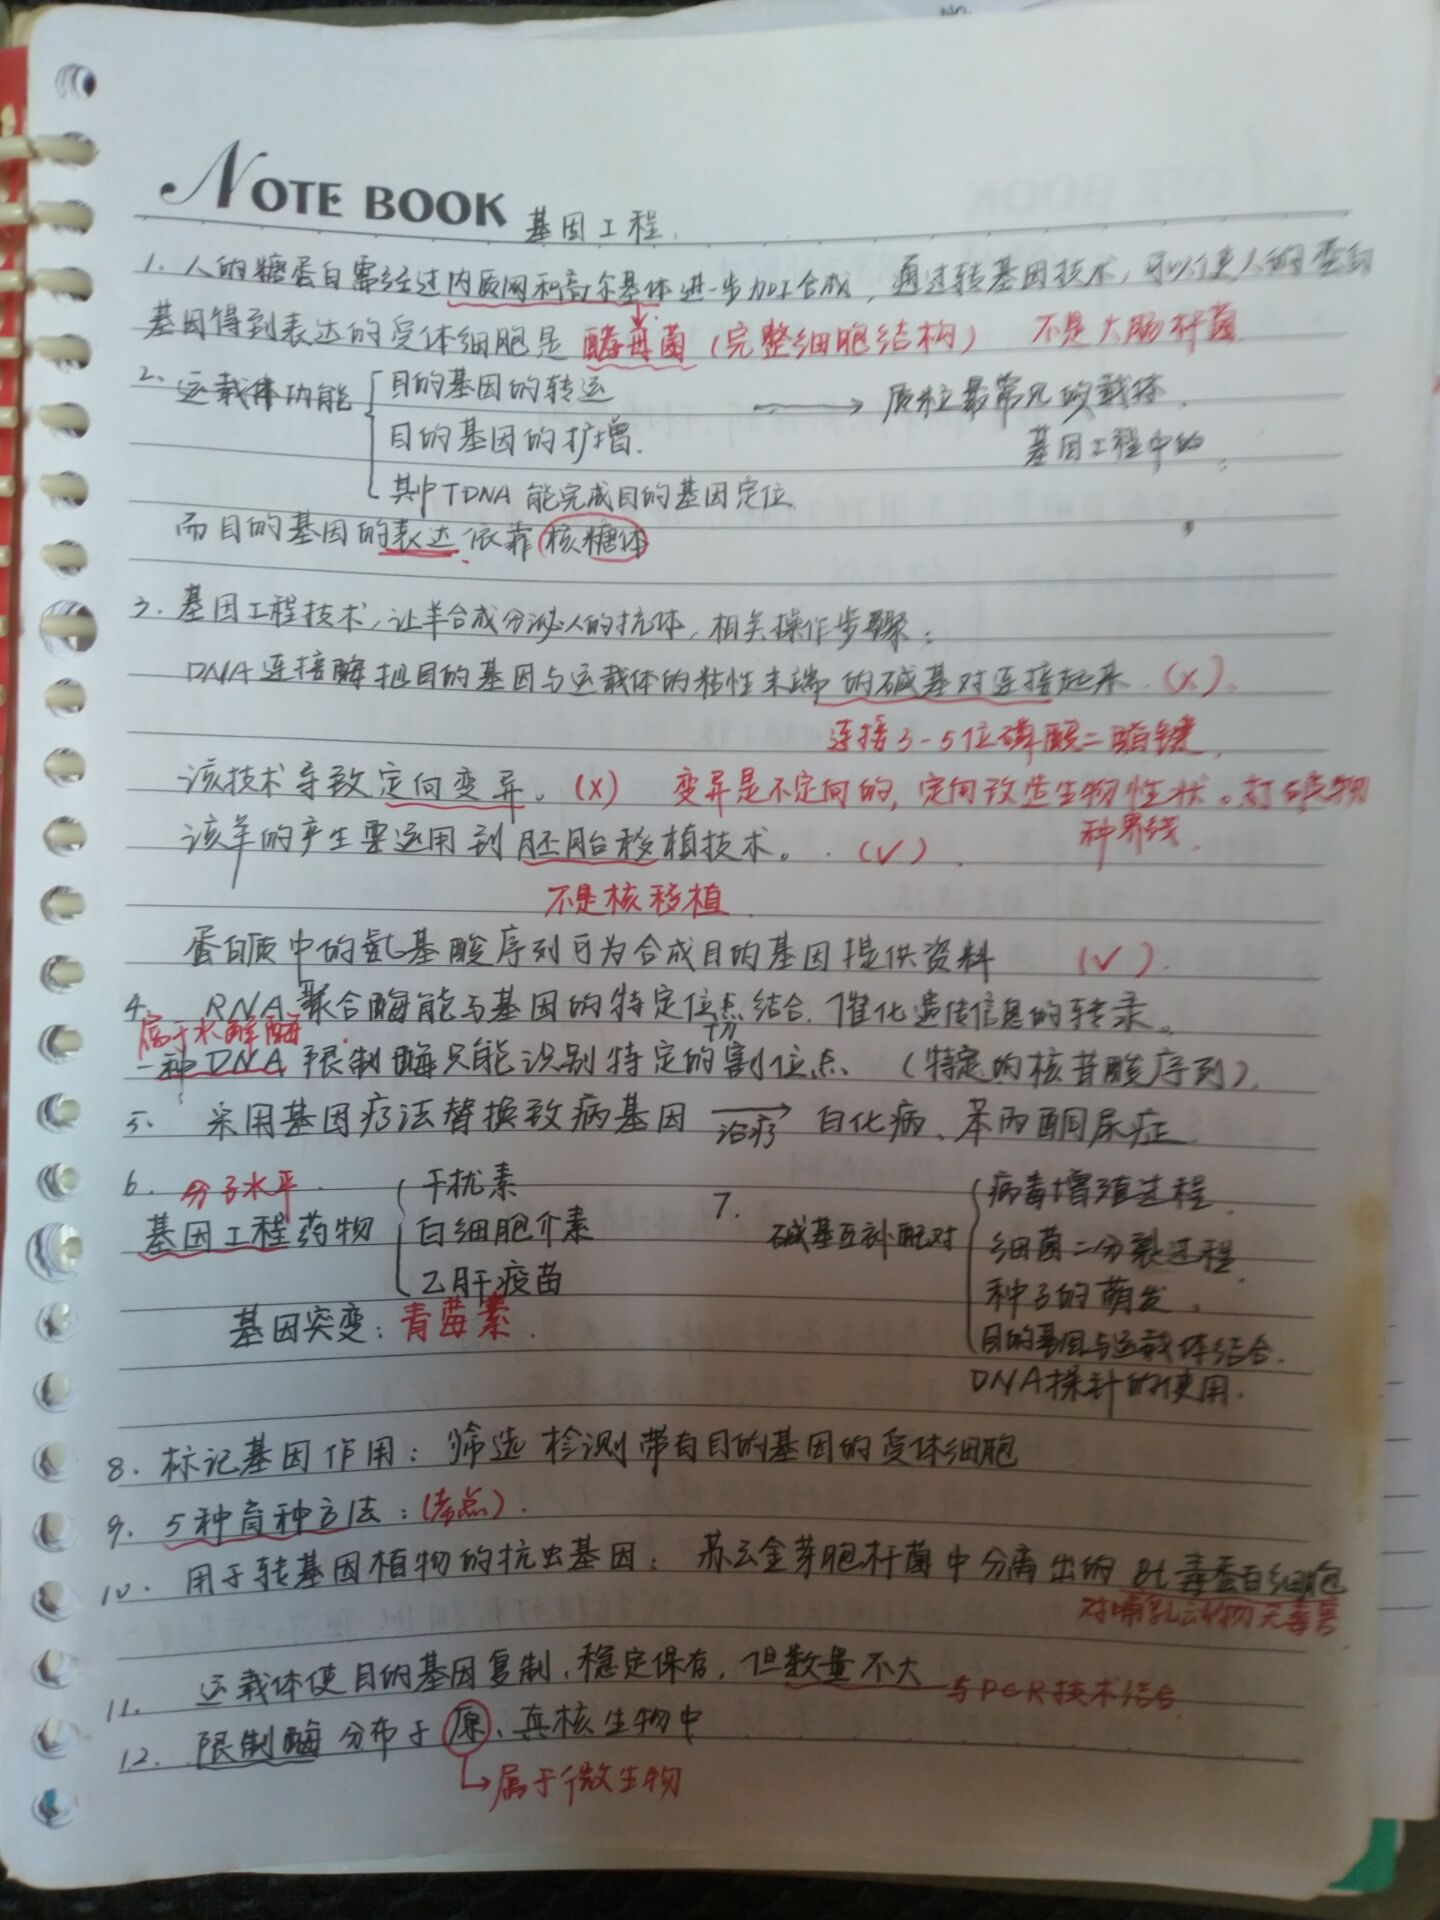 NOTE BOOK 基因工程.
1. 人的糖蛋白需经过内质网和高尔基体进一步加工合成，通过转基因技术，可以使人的蛋白
基因得到表达的受体细胞是 酵母菌（完整细胞结构） 不是大肠杆菌
2. 运载体功能
目的基因的转运 → 质粒最常见的载体.
目的基因的扩增. 基因工程中的
其中TDNA能完成目的基因定位
而目的基因的表达依靠核糖体
3. 基因工程技术，让羊合成分泌人的抗体，相关操作步骤：
DNA连接酶把目的基因与运载体的粘性末端的碱基对连接起来. (×).
连接3-5位磷酸二酯键.
该技术导致定向变异。(×) 变异是不定向的，定向改造生物性状。打破物
种界线.
该羊的产生要运用到胚胎移植技术。. (√)
不是核移植
蛋白质中的氨基酸序列可为合成目的基因提供资料 (√).
4. RNA聚合酶能与基因的特定位点结合. 催化遗传信息的转录。
属于水解酶.
一种DNA限制酶只能识别特定的切割位点 (特定的核苷酸序列)
5. 采用基因疗法替换致病基因 →治疗 白化病、苯丙酮尿症
6. 分子水平.
基因工程药物
干扰素
白细胞介素
乙肝疫苗
基因突变：青霉素.
7. 碱基互补配对
病毒增殖过程.
细菌二分裂过程.
种子的萌发.
目的基因与运载体结合.
DNA探针的使用.
8. 标记基因作用：筛选 检测带有目的基因的受体细胞
9. 5种育种方法：(考点).
10. 用于转基因植物的抗虫基因：苏云金芽胞杆菌中分离出的 Bt毒蛋白细胞
对哺乳动物无毒害.
11. 运载体使目的基因复制、稳定保存，但数量不大 与PCR技术结合
12. 限制酶分布于原、真核生物中
→属于微生物